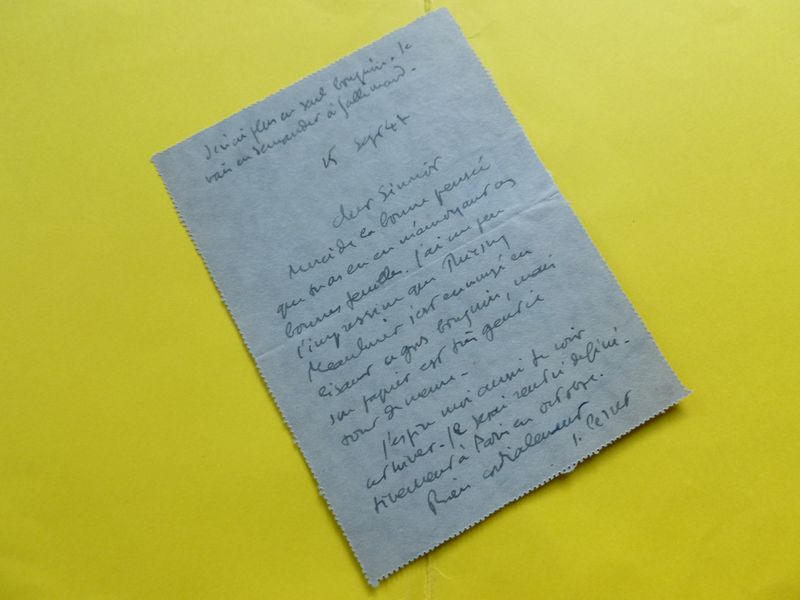 Je n'ai plus un seul bouquin. Je
vais en demander à Gallimard.
15 sept 47
Cher
Merci de la bonne pensée
que tu as eu en m'envoyant ces
bonnes feuilles. J'ai un peu
l'impression que Thierry
Maulnier s'est ennuyé en
lisant ce gros bouquin, mais
son papier est très gentil
tout de même.
J'espère moi aussi te voir
cet hiver. Je serai rentré défini-
tivement à Paris en octobre.
Bien cordialement
J.